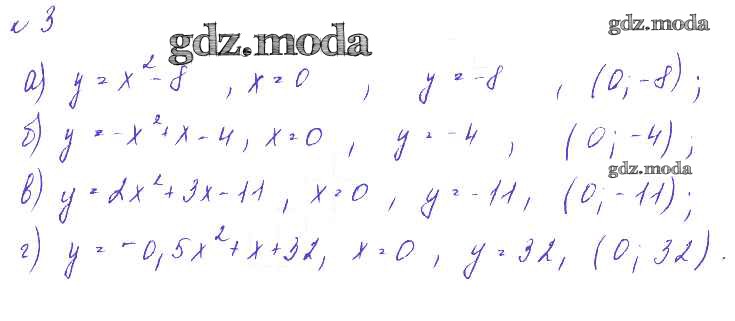 № 3
gdz.moda
gdz.moda
а) y = x² - 8 , x = 0 , y = -8 , (0; -8);
б) y = -x² + x - 4, x = 0 , y = -4 , (0; -4);
gdz.moda
в) y = 2x² + 3x - 11 , x = 0 , y = -11, (0; -11);
г) y = -0,5x² + x + 32, x = 0 , y = 32, (0; 32).